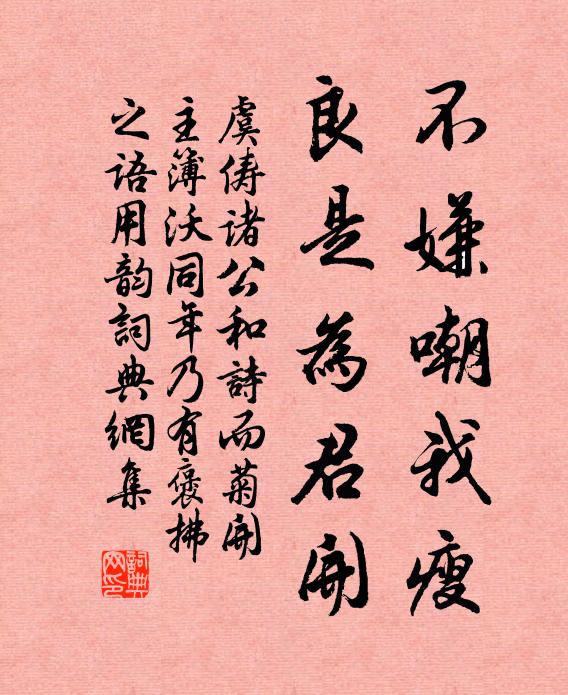 不嫌嘲我瘦
良是為君開
虞儔諸公和詩而菊開
主簿沃同年乃有褒拂
之語用韵詞典網集
詞典网印